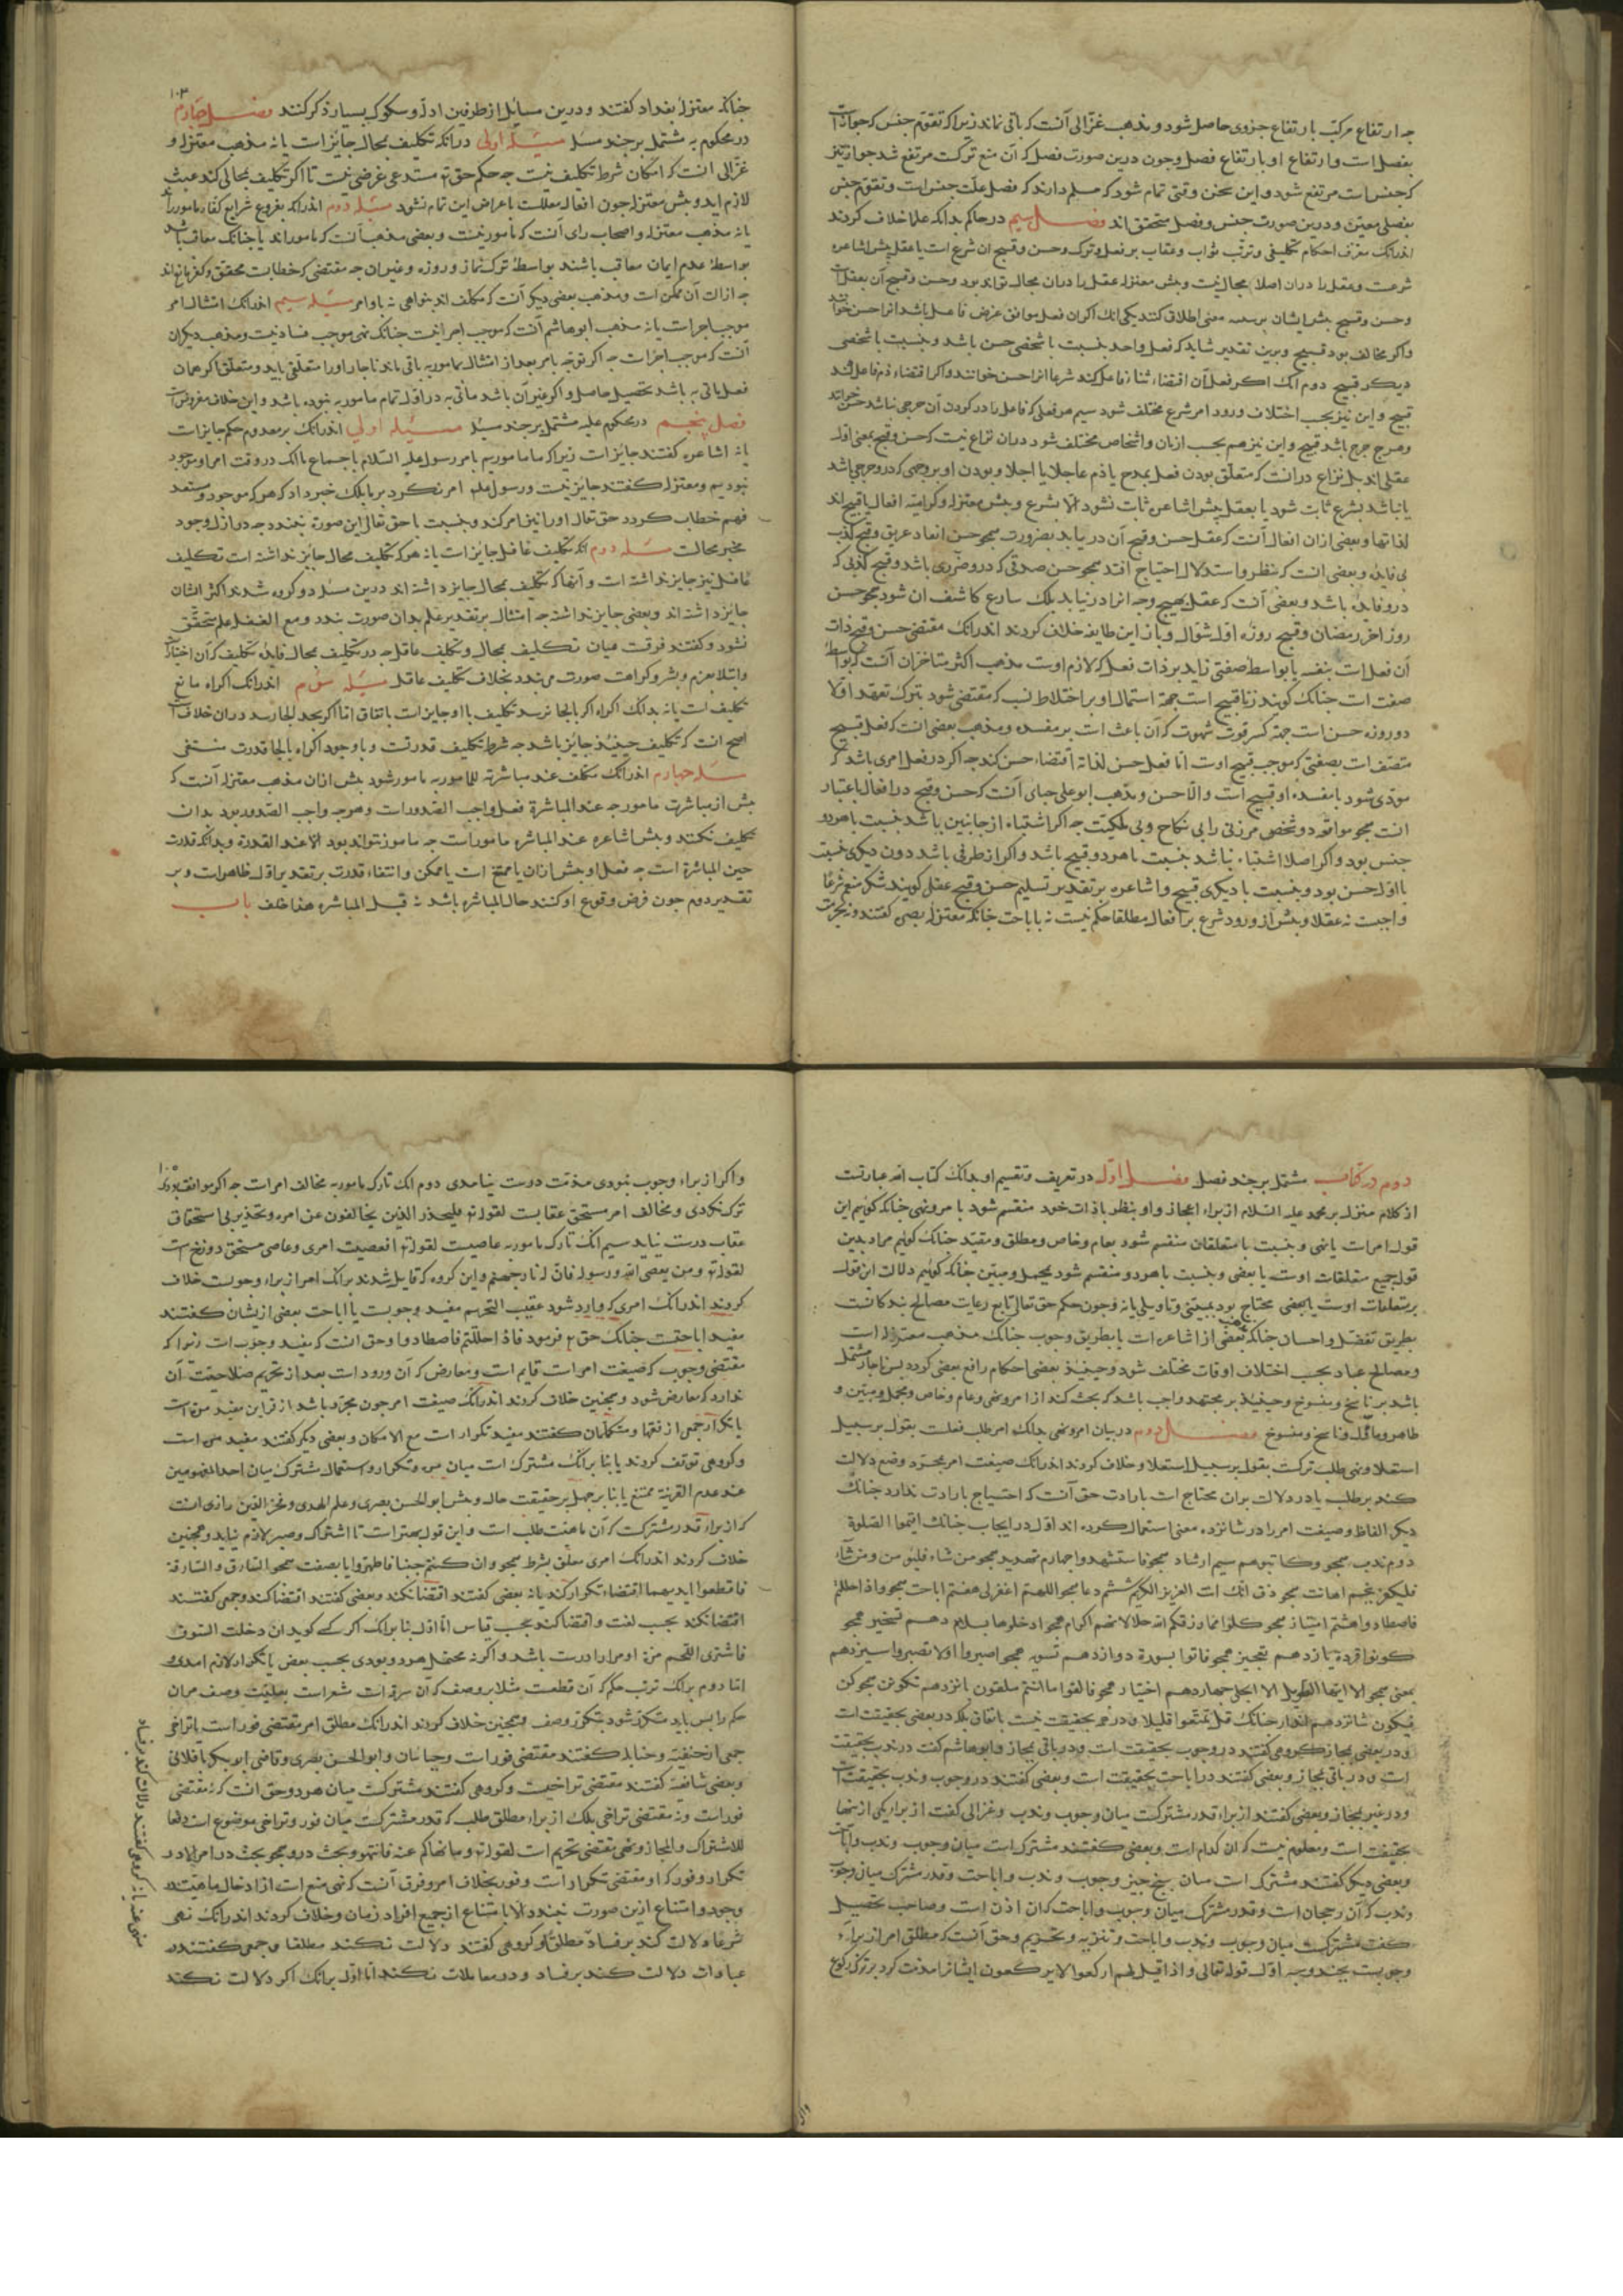 چه ارتفاع مرکب بارتفاع جزوی حاصل شود و مذهب غزالی آنست که باقی نماند زیرا که تقوم جنس که جوازات
بفصل است و ارتفاع او بارتفاع فصل و چون درین صورت فصل که آن منع ترکست مرتفع شد جواز نیز
که جنس است مرتفع شود و این سخن وقتی تمام شود که مسلم دارند که فصل علت جنس است و تقوم جنس
بفصلی معین و درین صورت جنس و فصل متحقق اند فصل سیم در حاکم بدانکه علما خلاف کردند
اندرانک معرف احکام تکلیفی و ترتب ثواب و عقاب بر فعل و ترک و حسن و قبح آن شرع است یا عقل پیش اشاعره
شرعست و عقل را دران اصلا مجال نیست و پیش معتزله عقل را دران مجال تواند بود و حسن و قبح آن بعقل است
و حسن و قبح پیش ایشان بر سه معنی اطلاق کنند یکی انک اگر آن فعل موافق غرض فاعل باشد انرا حسن خوانند
و اگر مخالف بود قبیح و برین تقدیر شاید که فعل واحد بنسبت با شخصی حسن باشد و بنسبت با شخصی
دیگر قبیح دوم انک اگر فعل آن اقتضاء ثناء فاعل کند شرعا انرا حسن خوانند و اگر اقتضاء ذم فاعل کند
قبیح و این نیز بحسب اختلاف ورود امر شرع مختلف شود سیم هر فعلی که فاعل را در کردن آن حرجی نباشد حسن خوانند
و هرچ حرج باشد قبیح و این نیز هم بحسب ازمان و اشخاص مختلف شود دران نزاع نیست که حسن و قبح بمعنی اول
عقلی اند بل نزاع در آنست که متعلق بودن فعل بمدح یا ذم عاجلا یا اجلا و بودن او بر وجهی که درو حرجی باشد
یا نباشد بشرع ثابت شود یا بعقل پیش اشاعره ثابت نشود الا بشرع و پیش معتزله و کرامیه افعال یا قبیح اند
لذاتها و بعضی ازان افعال آنست که عقل حسن و قبح آن دریابد بضرورت همچو حسن انقاذ غریق و قبح کذب
بی فایده و بعضی انست که بنظر و استدلال احتیاج افتد همچو حسن صدقی که درو ضرری باشد و قبح کذبی که
درو فایده باشد و بعضی آنست که عقل بهیچ وجه انرا درنیابد بلک شارع کاشف آن شود همچو حسن
روز اخر رمضان و قبح روزه اول شوال و باز این طایفه خلاف کردند اندرانک مقتضی حسن و قبح ذات
آن فعل است بنفسه یا بواسطه صفتی زاید بر ذات فعل که لازم اوست مذهب اکثر متاخران آنست که بواسطه
صفت است چنانک گویند زنا قبیح است جهة اشتمال او بر اختلاط نسب که مقتضی شود بترک تعهد اولاد
و روزه حسن است جهة کسر قوت شهوت که آن باعث است بر مفسده و مذهب بعضی انست که فعل قبیح
متصف است بصفتی که موجب قبح اوست اما فعل حسن لذاته اقتضاء حسن کند چه اگر در فعل امری باشد که
مودی شود بمفسده او قبیح است والا حسن و مذهب ابو علی جبای آنست که حسن و قبح در افعال باعتبار
انست همچو مواقعه دو شخص مر زنی را بی نکاح و بی ملکیت چه اگر اشتباه از جانبین باشد بنسبت با هر دو
حسن بود و اگر اصلا اشتباه نباشد بنسبت با هر دو قبیح باشد و اگر از طرفی باشد دون دیگری بنسبت
با اول حسن بود و بنسبت با دیگری قبیح و اشاعره بر تقدیر تسلیم حسن و قبح عقلی گویند شکر منعم شرعا
واجبست نه عقلا و پیش از ورود شرع بر افعال مطلقا حکم نیست نه باباحت چنانکه معتزله بصره گفتند و نه بحرمت
۱۰۳
چنانکه معتزله بغداد گفتند و درین مسایل از طرفین ادله و شکوک بسیار ذکر کنند فصل چهارم
در محکوم به مشتمل بر چند مسئله مسئله اولی درانکه تکلیف بمحال جایز است یا نه مذهب معتزله و
غزالی انست که امکان شرط تکلیف نیست چه حکم حق تع مستدعی غرضی نیست تا اگر تکلیف بمحالی کند عبث
لازم اید و پیش معتزله چون افعال معللست باغراض این تمام نشود مسئله دوم اندرانکه بفروع شرایع کفار ماموراند
یا نه مذهب معتزله و اصحاب رای آنست که مامور نیست و بعضی مذهب آنست که ماموراند یا چنانک معاقب باشند
بواسطه عدم ایمان معاقب باشند بواسطه ترک نماز و روزه و غیر ان چه مقتضی که خطابست محقق و کفر مانع نه اند
چه ازالت آن ممکن است و مذهب بعضی دیگر آنست که مکلف اند بنواهی نه باوامر مسئله سیم اندرانک امتثال امر
موجب اجزاست یا نه مذهب ابو هاشم آنست که موجب اجزا نیست چنانک نهی موجب فساد نیست و مذهب دیگران
آنست که موجب اجزاست چه اگر توجه بامر بعد از امتثال مامور به باقی ماند ناچار او را متعلقی باید و متعلق اگر همان
فعل ماتی به باشد تحصیل حاصل و اگر غیر آن باشد ماتی به در اول تمام مامور به نبوده باشد و این خلاف مفروض است
فصل پنجم در محکوم علیه مشتمل بر چند مسئله مسئله اولی اندرانک بر معدوم حکم جایز است
یا نه اشاعره گفتند جایز است زیرا که ما ماموریم بامر رسول علیه السلام باجماع با انک در وقت امر او موجود
نبودیم و معتزله گفتند جایز نیست و رسول علم امر نکرد بر ما بلک خبر داد که هر که موجود و مستعد
فهم خطاب گردد حق تعالی او را نیز امر کند و بنسبت با حق تعالی این صورة نبندد چه در ازل وجود
مخبر محالست مسئله دوم انکه تکلیف غافل جایز است یا نه هر که تکلیف محال جایز نداشته است تکلیف
غافل نیز جایز نداشته است و آنها که تکلیف بمحال جایز داشته اند درین مسئله دو گروه شدند اکثر ایشان
جایز داشته اند و بعضی جایز نداشته چه امتثال بر تقدیر علم بدان صورت بندد و مع الغفله علم متحقق
نشود و گفتند فرقست میان تکلیف بمحال و تکلیف غافل چه در تکلیف بمحال فایده تکلیف که آن اختبار است
و ابتلا بعزم و بشر و کراهت صورت می بندد بخلاف تکلیف غافل مسئله سوم اندرانک اکراه مانع
تکلیف است یا نه بدانک اکراه اگر بالجا نرسد تکلیف با او جایز است باتفاق اما اگر بحد الجا رسد دران خلاف است
اصح انست که تکلیف حینئذ جایز باشد چه شرط تکلیف قدرتست و با وجود اکراه بالجا قدرت منتفی
مسئله چهارم اندرانک مکلف عند مباشرته للمامور به مامور شود پیش ازان مذهب معتزله آنست که
پیش از مباشرت مامور چه عند المباشرة فعل واجب الصدورات و هرچه واجب الصدور بود بدان
تکلیف نکنند و پیش اشاعره عند المباشره مامور است چه مامور نتواند بود الا عند القدرة و بدانکه قدرت
حین المباشرة است چه فعل او پیش ازان یا ممتنع است یا ممکن و انتفاء قدرت بر تقدیر اول ظاهر است و بر
تقدیر دوم چون فرض وقوع او کنند حال المباشره باشد نه قبل المباشره هذا خلف باب
دوم در کتاب مشتمل بر چند فصل فصل اول در تعریف و تقسیم او بدانک کتاب الله عبارتست
از کلام منزل بر محمد علیه السلام از براء اعجاز و او بنظر با ذات خود منقسم شود با امر و نهی چنانکه گوئیم این
قول امر است یا نهی و بنسبت با متعلقان منقسم شود بعام و خاص و مطلق و مقید چنانک گوئیم مراد بدین
قول جمیع متعلقات اوست یا بعضی و بنسبت با هر دو منقسم شود بمجمل و مبین چنانکه گوئیم دلالت این قول
بر متعلقات اوست یا بعضی محتاج بود بمبینی و تاویلی یا نه و چون حکم حق تعالی تابع رعایت مصالح بندگانست
بطریق تفضل و احسان چنانکه مذهب بعضی از اشاعره است یا بطریق وجوب چنانک مذهب معتزله است
و مصالح عباد بحسب اختلاف اوقات مختلف شود و حینئذ بعضی احکام رافع بعضی گردد پس ناچار مشتمل
باشد بر ناسخ و منسوخ و حینئذ بر مجتهد واجب باشد که بحث کند از امر و نهی و عام و خاص و مجمل و مبین و
ظاهر و ماول و ناسخ و منسوخ فصل دوم در بیان امر و نهی بدانک امر طلب فعلست بقول بر سبیل
استعلا و نهی طلب ترکست بقول بر سبیل استعلا و خلاف کردند اندرانک صیغت امر بمجرد وضع دلالت
کند بر طلب یا در دلالت بران محتاج است بارادت حق آنست که احتیاج بارادت ندارد چنانک
دیگر الفاظ و صیغت امر را در شانزده معنی استعمال کرده اند اول در ایجاب چنانک اقیموا الصلوة
دوم ندب همچو فکاتبوهم سیم ارشاد همچو فاستشهدوا چهارم تهدید همچو من شاء فلیؤمن و من شاء
فلیکفر پنجم اهانت همچو ذق انک انت العزیز الکریم ششم دعا همچو اللهم اغفر لی هفتم اباحت همچو و اذا حللتم
فاصطادوا هشتم امتنان همچو کلوا مما رزقکم الله حلالا نهم اکرام همچو ادخلوها بسلام دهم تسخیر همچو
کونوا قردة یازدهم تعجیز همچو فاتوا بسورة دوازدهم تسویه همچو اصبروا او لا تصبروا سیزدهم
تمنی همچو الا ایها اللیل الطویل الا انجلی چهاردهم احتقار همچو فالقوا ما انتم ملقون پانزدهم تکوین همچو کن
فیکون شانزدهم انذار چنانک قل تمتعوا قلیلا و در همه بحقیقت نیست باتفاق بلک در بعضی بحقیقت است
و در بعضی بمجاز گروهی گفتند در وجوب بحقیقت است و در باقی بمجاز و ابو هاشم گفت در ندب بحقیقت
است و در باقی بمجاز و بعضی گفتند در اباحت بحقیقت است و بعضی گفتند در وجوب و ندب بحقیقت است
و در غیر بمجاز و بعضی گفتند از براء قدر مشترکست میان وجوب و ندب و غزالی گفت از برای یکی ازینها
بحقیقت است و معلوم نیست که ان کدام است و بعضی گفتند مشترک است میان وجوب و ندب و اباحت
و بعضی دیگر گفتند مشترک است میان پنج چیز وجوب و ندب و اباحت و قدر مشترک میان وجوب
و ندب که آن رجحان است و قدر مشترک میان وجوب و اباحت که ان اذن است و صاحب تحصیل
گفت مشترکست میان وجوب و ندب و اباحت و تنزیه و تحریم و حق آنست که مطلق امر از براء
وجوبست بچند وجه اول قوله تعالی و اذا قیل لهم ارکعوا لا یرکعون ایشانرا مذمت کرد بر ترک رکوع
۱۰۵
و اگر از براء وجوب نبودی مذمت درست نیامدی دوم انک تارک مامور به مخالف امر است چه اگر موافق بودی
ترک نکردی و مخالف امر مستحق عقابست لقوله تع فلیحذر الذین یخالفون عن امره و تحذیر بی استحقاق
عقاب درست نیاید سیم انک تارک مامور به عاصیست لقوله تع افعصیت امری و عاصی مستحق دوزخ است
لقوله تع و من یعصی الله و رسوله فان له نار جهنم و این گروه که قایل شدند برانک امر از براء وجوبست خلاف
کردند اندرانک امری که وارد شود عقیب التحریم مفید وجوبست یا اباحت بعضی ازیشان گفتند
مفید اباحتست چنانک حق تع فرمود فاذا حللتم فاصطادوا و حق انست که مفید وجوب است زیرا که
مقتضی وجوب که صیغت امر است قایم است و معارض که آن ورود است بعد از تحریم صلاحیت آن
ندارد که معارض شود و همچنین خلاف کردند اندرانک صیغت امر چون مجرد باشد از قراین مفید مرة است
یا تکرار جمعی از فقها و متکلمان گفتند مفید تکرار است مع الامکان و بعضی دیگر گفتند مفید مرة است
و گروهی توقف کردند یا بنا برانک مشترک است میان مره و تکرار و استعمال مشترک میان احد المفهومین
عند عدم القرینة ممتنع یا بنا بر جهل بر حقیقت حال و پیش ابو الحسین بصری و علم الهدی و فخر الدین رازی انست
که از براء قدر مشترکست که آن ماهیت طلب است و این قول بهتر است تا اشتراک و مجاز لازم نیاید و همچنین
خلاف کردند اندرانک امری معلق بشرط همچو و ان کنتم جنبا فاطهروا یا بصفت همچو السارق و السارقة
فاقطعوا ایدیهما اقتضاء تکرار کند یا نه بعضی گفتند اقتضا نکند و بعضی گفتند اقتضا کند و جمعی گفتند
اقتضا نکند بحسب لغت و اقتضا کند بحسب قیاس اما اول بنا برانک اگر کسی گوید ان دخلت السوق
فاشتری اللحم مرة او مرارا درست باشد و اگر نه محتمل هر دو بودی بحسب بعض یا تکرار لازم امدی
اما دوم برانک ترتب حکم که آن قطعست مثلا بر وصف که آن سرقه است مشعر است بعلیت وصف مر ان
حکم را پس باید متکرر شود بتکرر وصف و همچنین خلاف کردند اندرانک مطلق امر مقتضی فور است یا تراخی
جمعی از حنفیه و حنابله گفتند مقتضی فور است و جبائیان و ابو الحسین بصری و قاضی ابو بکر باقلانی
و بعضی شافعیه گفتند مقتضی تراخیست و گروهی گفتند مشترکست میان هر دو و حق انست که نه مقتضی
فور است و نه مقتضی تراخی بلک از براء مطلق طلب که قدر مشترکست میان فور و تراخی موضوع است دفعا
للاشتراک و المجاز و نهی مقتضی تحریم است لقوله تع و ما نهاکم عنه فانتهوا و بحث درو همچو بحث در امر الا در
تکرار و فور که او مقتضی تکرار است و فور بخلاف امر و فرق آنست که نهی منع است از ادخال ماهیت در
وجود و امتناع ازین صورت نبندد الا با امتناع از جمیع افراد زمان و خلاف کردند اندرانک نهی
شرعا دلالت کند بر فساد مطلقا و گروهی گفتند دلالت نکند مطلقا و جمعی گفتند در
عبادات دلالت کند بر فساد و در معاملات نکند اما اول برانک اگر دلالت نکند
منهی عنه یا نه گروهی گفتند دلالت کند بر فساد